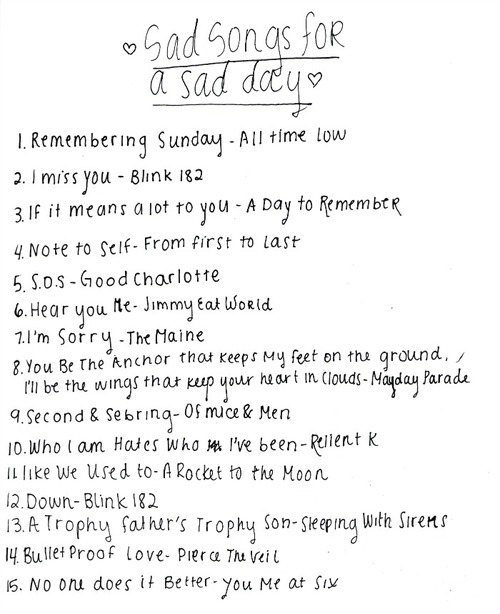 ♡ Sad Songs for
a sad day ♡
1. Remembering Sunday - All time low
2. I miss you - Blink 182
3. If it means a lot to you - A Day to Remember
4. Note to Self - From first to Last
5. S.O.S - Good Charlotte
6. Hear you Me - Jimmy Eat World
7. I'm Sorry - The Maine
8. You Be The Anchor that keeps My feet on the ground, /
I'll be the wings that keep your heart in Clouds - Mayday Parade
9. Second & Sebring - Of mice & Men
10. Who I am Hates Who I've been - Relient K
11. like We Used to - A Rocket to the Moon
12. Down - Blink 182
13. A Trophy father's Trophy Son - Sleeping With Sirens
14. Bullet Proof Love - Pierce The Veil
15. No one does it Better - You Me at Six